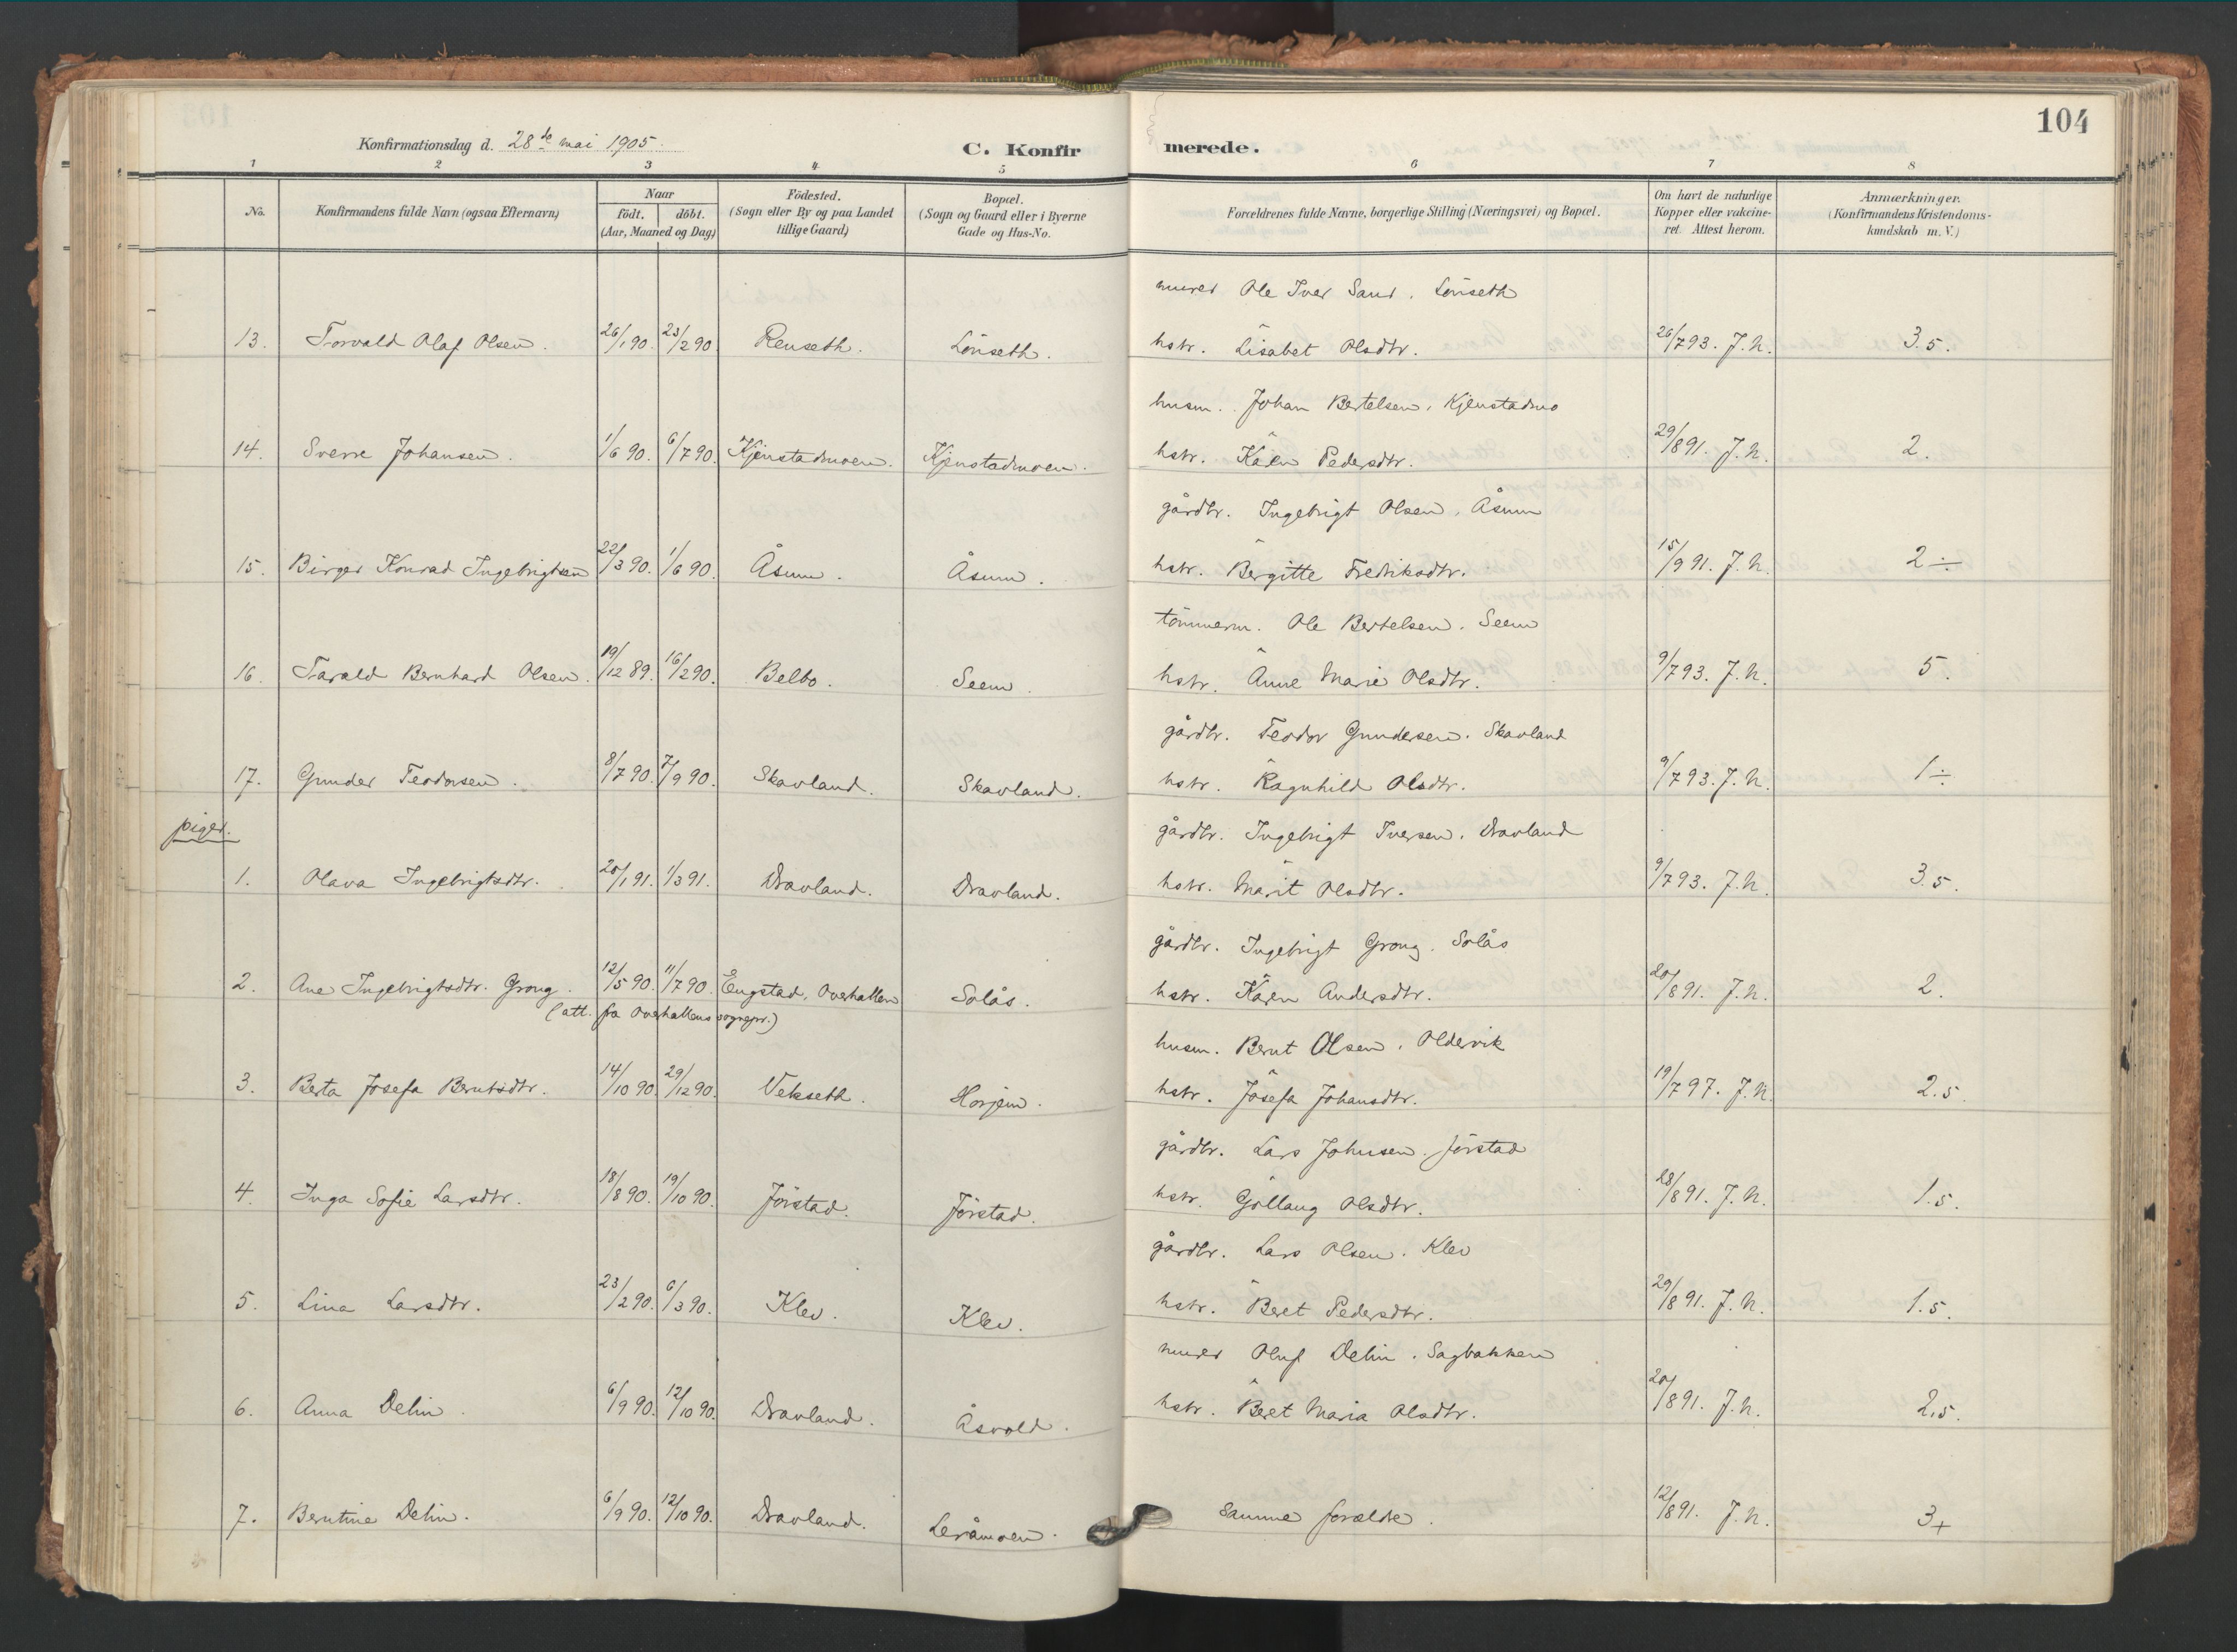 104
Konfirmationsdag d. 28de mai 1905.
C. Konfirmerede.
1 2 3 4 5 6 7 8
No.
Konfirmandens fulde Navn (ogsaa Efternavn)
Naar
födt. döbt.
(Aar, Maaned og Dag)
Födested.
(Sogn eller By og paa Landet
tillige Gaard)
Bopæl.
(Sogn og Gaard eller i Byerne
Gade og Hus-No.
Forældrenes fulde Navne, borgerlige Stilling (Næringsvei) og Bopæl.
Om havt de naturlige
Kopper eller vakcine-
ret. Attest herom.
Anmærkninger.
(Konfirmandens Kristendoms-
kundskab m. V.)
murer Ole Iver Sand. Lönseth
13. Torvald Olaf Olsen. 26/1 90. 23/2 90. Renseth. Lönseth. hstr. Lisabet Olsdtr. 26/7 93. J.N. 3.5.
husm. Johan Bertelsen, Kjenstadmo
14. Sverre Johansen. 1/6 90. 6/7 90. Kjenstadmoen. Kjenstadmoen. hstr. Karen Pedersdtr. 29/8 91. J.N. 2.
gårdbr. Ingebrigt Olsen, Åsum
15. Birger Konrad Ingebrigtsen 22/3 90. 1/6 90. Åsum. Åsum. hstr. Bergitte Fredriksdtr. 15/9 91. J.N. 2÷
tömmerm. Ole Bertelsen. Seem
16. Tarald Bernhard Olsen. 19/12 89. 16/2 90. Belbo. Seem. hstr. Anne Marie Olsdtr. 9/7 93. J.N. 5.
gårdbr. Teodor Gundersen. Skavland
17. Gunder Teodorsen. 8/7 90. 7/9 90. Skavland. Skavland. hstr. Ragnhild Olsdtr. 9/7 93. J.N. 1÷
piger.
gårdbr. Ingebrigt Iversen. Dravland
1. Olava Ingebrigtsdtr. 20/1 91. 1/3 91. Dravland. Dravland. hstr. Marit Olsdtr. 9/7 93. J.N. 3.5.
gårdbr. Ingebrigt Grong. Solås
2. Ane Ingebrigtsdtr. Grong. 12/5 90. 11/7 90. Engstad, Overhallen Solås. hstr. Karen Andersdtr. 20/8 91. J.N. 2.
(att. fra Overhallens sognepr.)
husm. Bernt Olsen. Oldervik
3. Berta Josefa Berntsdtr. 14/10 90. 29/12 90. Vekseth. Horjem. hstr. Josefa Johansdtr. 19/7 97. J.N. 2.5.
gårdbr. Lars Johnsen. Jörstad
4. Inga Sofie Larsdtr. 18/8 90. 19/10 90. Jörstad. Jörstad. hstr. Göllaug Olsdtr. 28/8 91. J.N. 1.5.
gårdbr. Lars Olsen. Klev
5. Lina Larsdtr. 23/2 90. 6/3 90. Klev. Klev. hstr. Beret Pedersdtr. 29/8 91. J.N. 1.5.
murer Oluf Delin. Sagbakken
6. Anna Delin. 6/9 90. 12/10 90. Dravland. Åsvold. hstr. Beret Maria Olsdtr. 20/8 91. J.N. 2,5.
7. Berntine Delin. 6/9 90. 12/10 90. Dravland. Leråmoen. samme forældre. 12/8 91. J.N. 3+